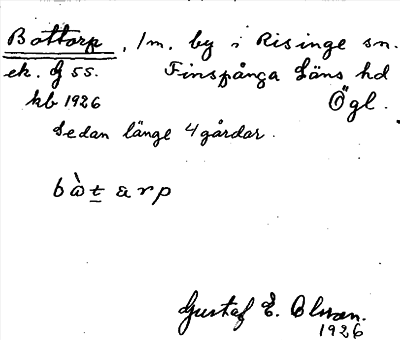 Bottorp, 1 m. by i Risinge sn.
ek. J 55. Finspånga Läns hd
kb 1926 Ögl.
Sedan länge 4 gårdar.
bὼt a r p
Gustaf E. Olsson.
1926